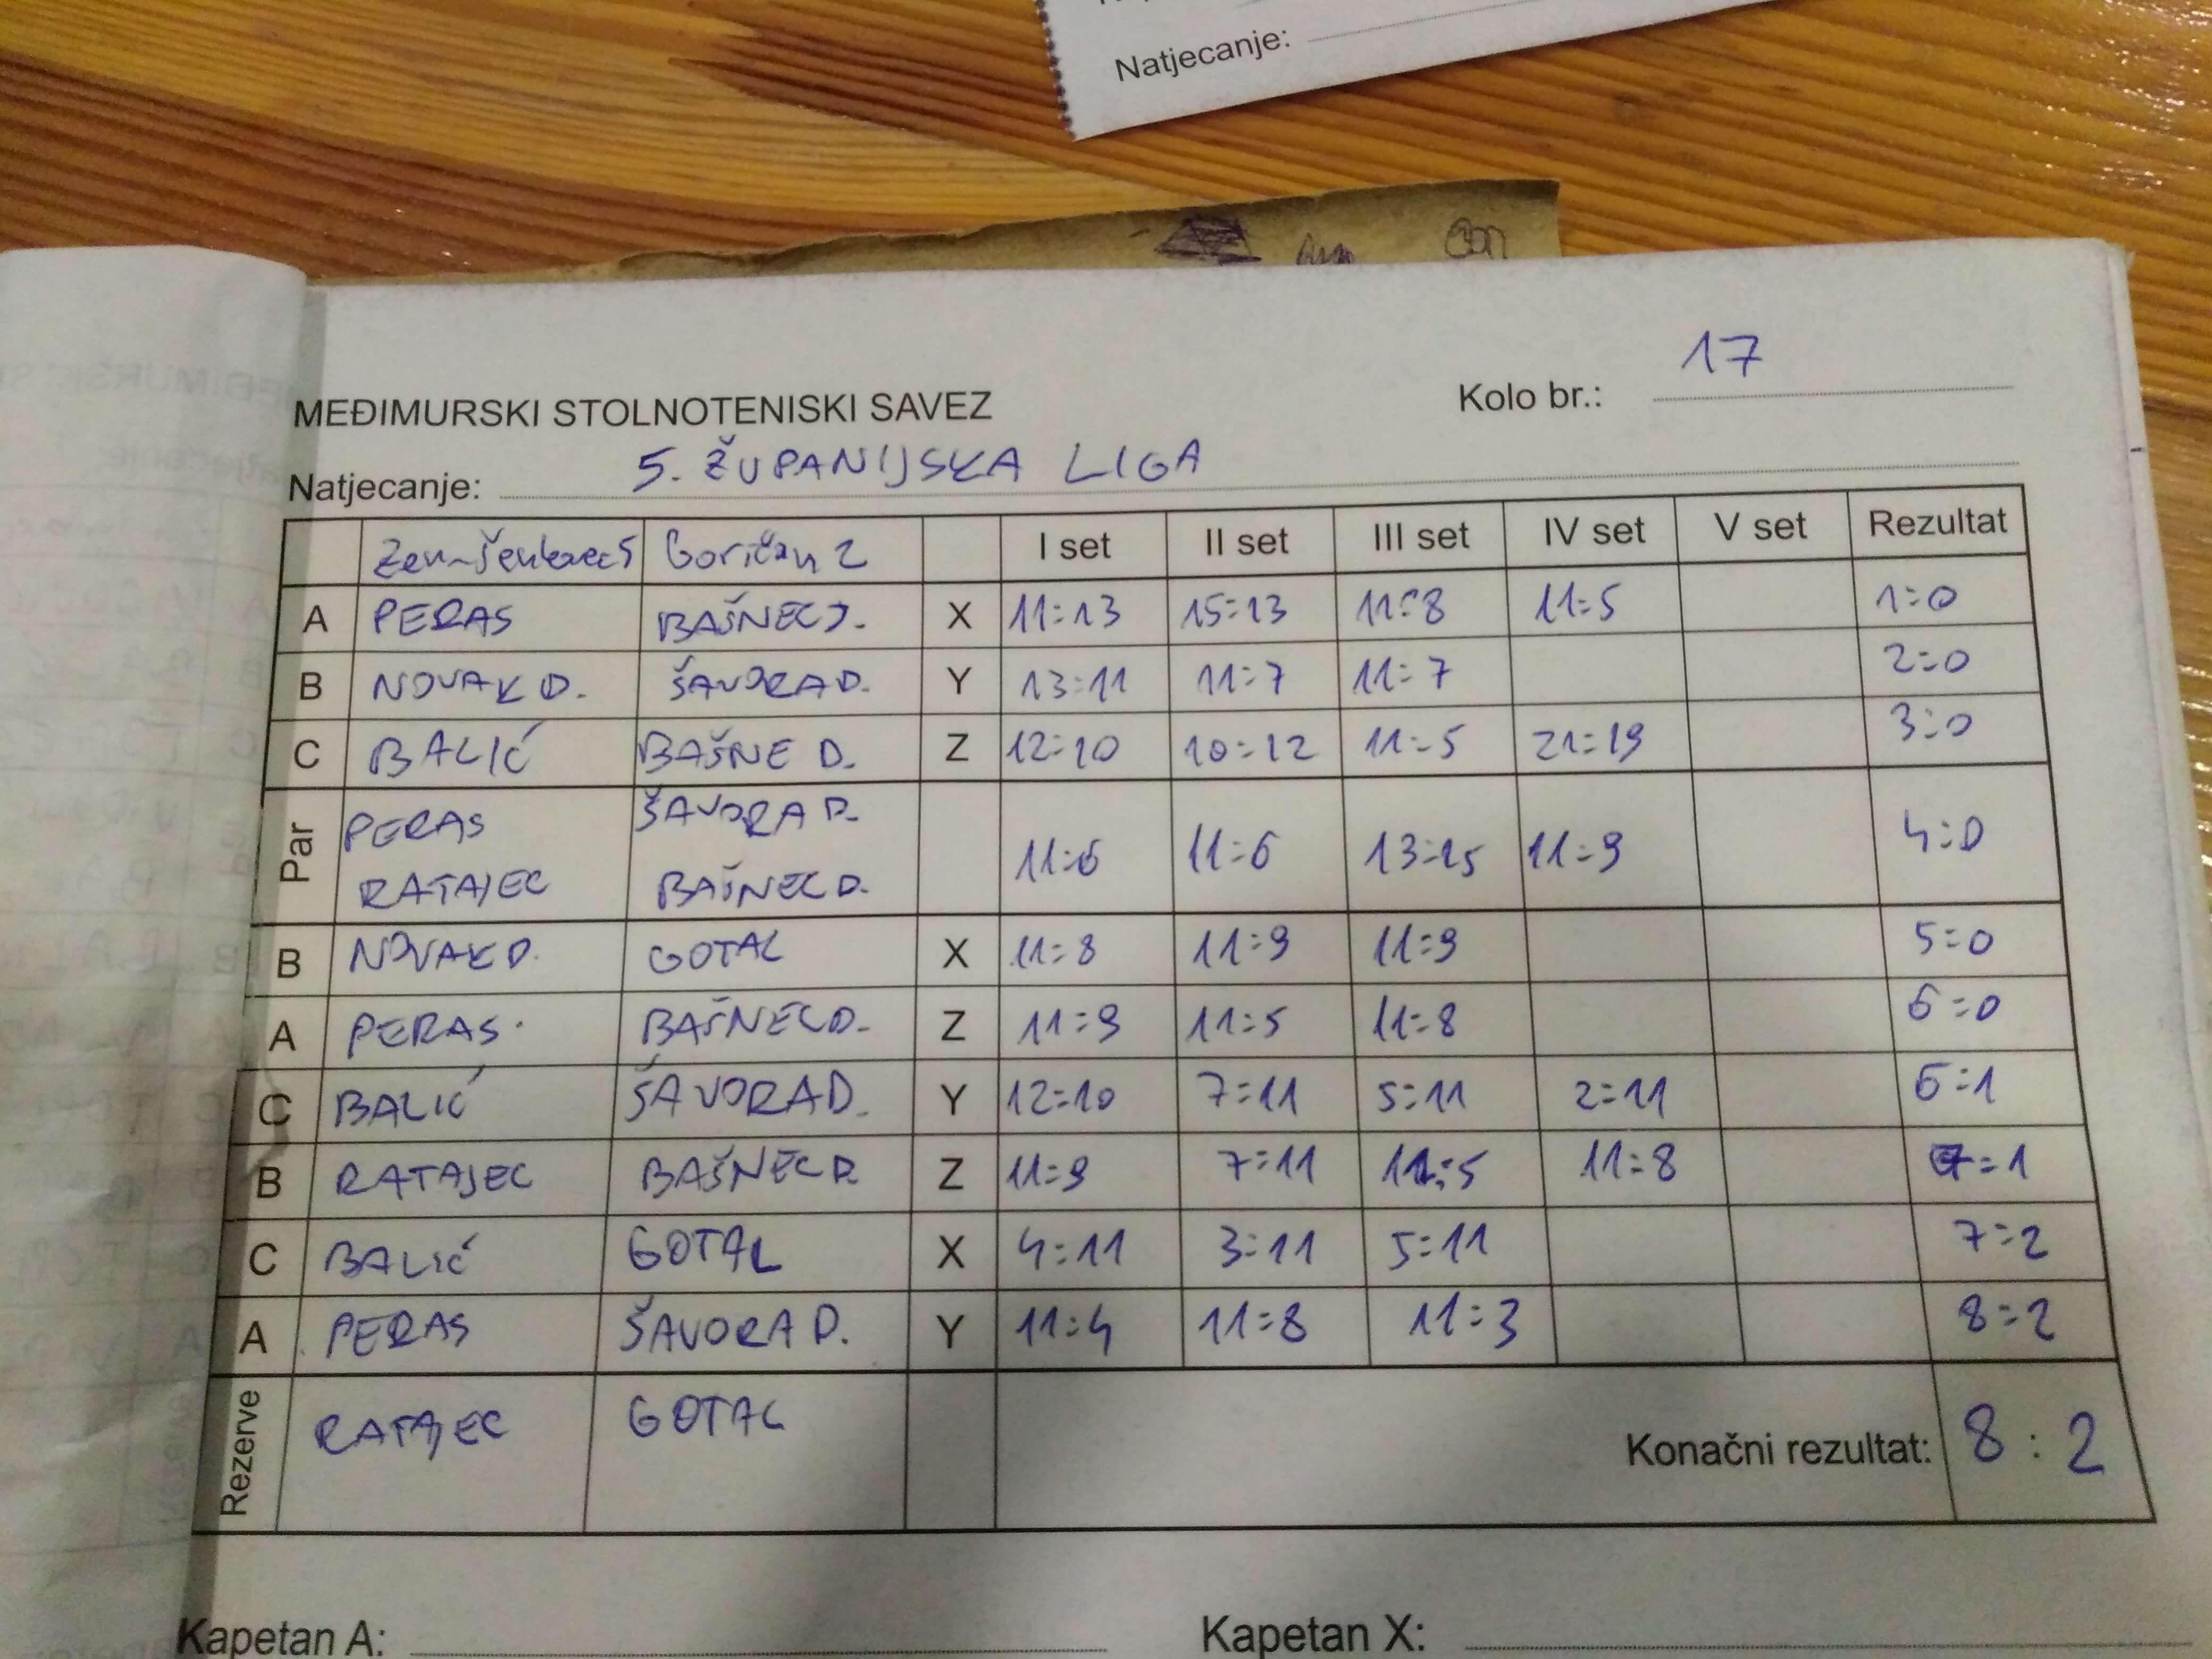 Natjecanje:
Kolo br.: 17
MEĐIMURSKI STOLNOTENISKI SAVEZ
Natjecanje: 5. ŽUPANIJSKA LIGA
Goričan 2 I set II set III set IV set V set Rezultat
A PERAS BAŠNEC J. X 11:13 15:13 11:8 11:5 1:0
B NOVAK D. ŠAVORA D. Y 13:11 11:7 11:7 2:0
C BALIĆ BAŠNE D. Z 12:10 10:12 11:5 21:19 3:0
Par PERAS ŠAVORA D. 11:6 11:6 13:15 11:9 4:0
RATAJEC BAŠNEC D.
B NOVAK D. GOTAL X 11:8 11:9 11:9 5:0
A PERAS. BAŠNEC D. Z 11:9 11:5 11:8 6:0
C BALIĆ ŠAVORA D. Y 12:10 7:11 5:11 2:11 6:1
B RATAJEC BAŠNEC D. Z 11:9 7:11 11:5 11:8 7:1
C BALIĆ GOTAL X 4:11 3:11 5:11 7:2
A PERAS ŠAVORA D. Y 11:4 11:8 11:3 8:2
Rezerve RATAJEC GOTAL Konačni rezultat: 8:2
Kapetan A: Kapetan X: